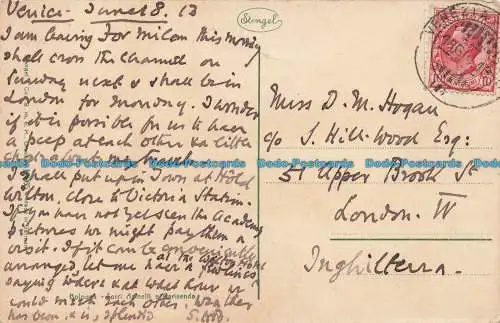 Venice - June 18. 13
I am leaving for Milan this Monday
shall cross the Channel on
Sunday next & shall be in
London for Monday. I wonder
if it is possible for us to have
a peep at each other & a little
I shall put up in Town at Hôtel
Wilton, close to Victoria Station.
If you have not yet seen the Academy
pictures we might pay them a
visit. If it can be conveniently
arranged, let me have a few lines
at the Wilton Hotel
saying where & at what hour we
could meet each other. Weather
has been, & is, splendid
Stengel
Miss D. M. Hogan
c/o S. Hill-Wood Esq:
51 Upper Brook St
London. W
Inghilterra.
Bologna - Torri Asinelli e Garisenda
Bobo-Postcards
Bobo-Postcards
Bobo-Postcards
Bobo-Postcards